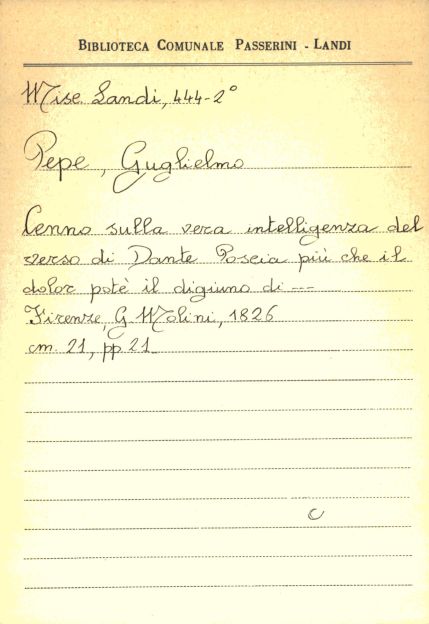 BIBLIOTECA COMUNALE PASSERINI - LANDI
Misc. Landi, 444-2°
Pepe, Guglielmo
Cenno sulla vera intelligenza del
verso di Dante Poscia più che il
dolor potè il digiuno di ---
Firenze, G. Molini, 1826
cm. 21, pp. 21.
C